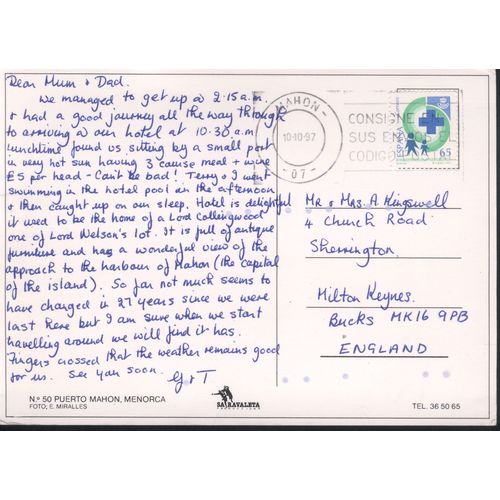 Dear Mum & Dad.
We managed to get up @ 2.15 a.m.
& had a good journey all the way through
to arriving @ our hotel at 10.30 a.m
lunchtime found us sitting by a small port
in very hot sun having 3 cause meal & wine
£5 per head - Can't be bad! Terry & I went
swimming in the hotel pool in the afternoon
& then caught up on our sleep. Hotel is delightful
it used to be the home of a Lord Collingwood
one of Lord Nelson's lot. It is full of antique
furniture and has a wonderful view of the
approach to the harbour of Mahon (the capital
of the island). So far not much seems to
have changed in 27 years since we were
last here but I am sure when we start
travelling around we will find it has.
Fingers crossed that the weather remains good
for us. See you soon.
G & T
MAHON
10-10-97
- 07 -
CONSIGNE
SUS EN
CODIGO
ESPAÑA
65
Mr & Mrs. A Kingswell
4 Church Road
Sherrington.
Milton Keynes.
Bucks MK16 9PB
ENGLAND
N.º 50 PUERTO MAHON, MENORCA
FOTO; E. MIRALLES
SA RAVALETA
TEL. 36 50 65